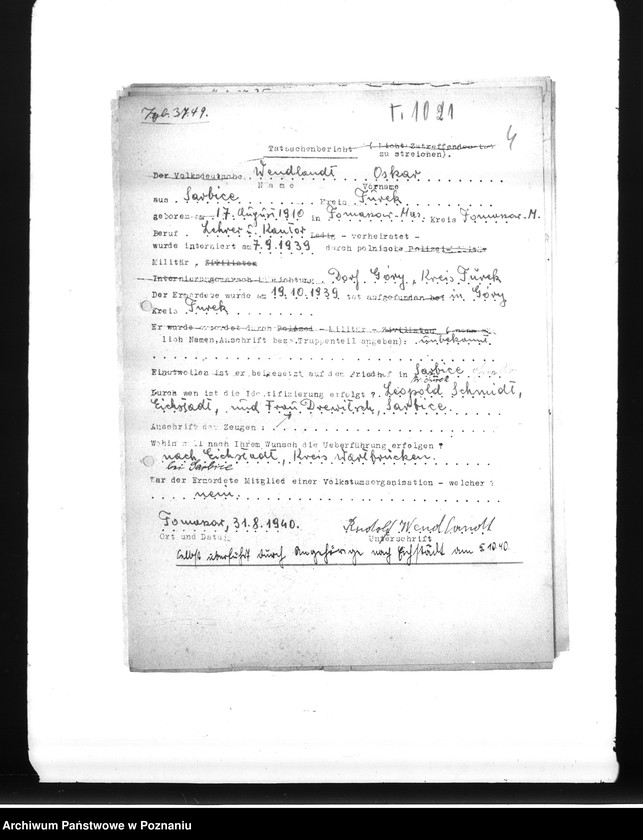 Tgb. 3749.
T. 1021
4
Tatsachenbericht (Nicht Zutreffendes ist
zu streichen).
Der Volksdeutsche Wendlandt Oskar
Name Vorname
aus Sarbice Kreis Turek
geboren am 17. August 1910 in Tomaszow-Maz. Kreis Tomaszow-M.
Beruf Lehrer u. Kantor Ledig - verheiratet -
wurde interniert am 7.9.1939 durch polnische Polizei
Militär, Zivilisten
Internierungsmarsch Dorf Góry, Kreis Turek
Der Ermordete wurde am 19.10.1939 tot aufgefunden in Góry
Kreis Turek
Er wurde ermordet durch Polizei - Militär - Zivilisten
lich Namen, Anschrift bezw. Truppenteil angeben): unbekannt.
Einstweilen ist er beigesetzt auf dem Friedhof in Sarbice
Kr. Turek
Durch wen ist die Identifizierung erfolgt? Leopold Schmidt,
Eichstädt, und Frau Drewitsch, Sarbice.
Anschrift der Zeugen:
Wohin soll nach Ihrem Wunsch die Ueberführung erfolgen?
nach Eichstadt, Kreis Wartbrücken.
bei Sarbice
War der Ermordete Mitglied einer Volkstumsorganisation - welcher?
nein.
Tomaszow, 31.8.1940. Rudolf Wendlandt
Ort und Datum Unterschrift
Selbst überführt durch Angehörige nach Eichstädt am 5.10.40.
Archiwum Państwowe w Poznaniu